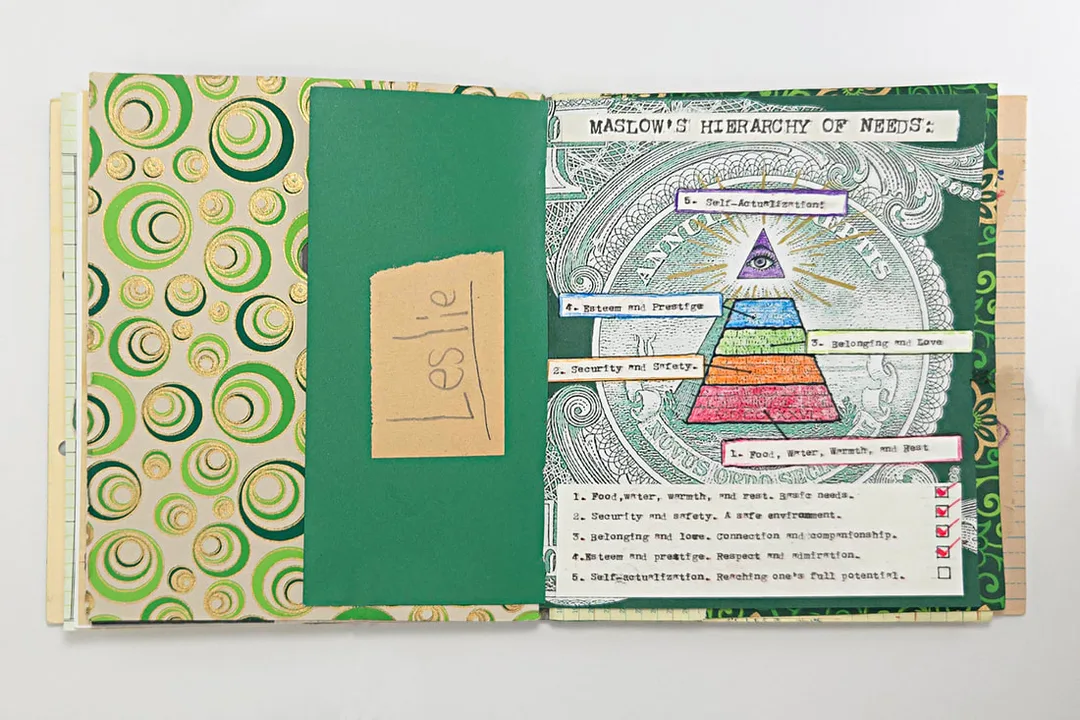 Leslie
MASLOW'S HIERARCHY OF NEEDS:
5. Self-Actualization!
ANNU EPTIS
4. Esteem and Prestige
3. Belonging and Love
2. Security and Safety.
NOVUS ORDO SE
1. Food, Water, Warmth, and Rest
1. Food,water, warmth, and rest. Basic needs.
2. Security and safety. A safe environment.
3. Belonging and love. Connection and companionship.
4.Esteem and prestige. Respect and admiration.
5. Self-actualization. Reaching one's full potential.